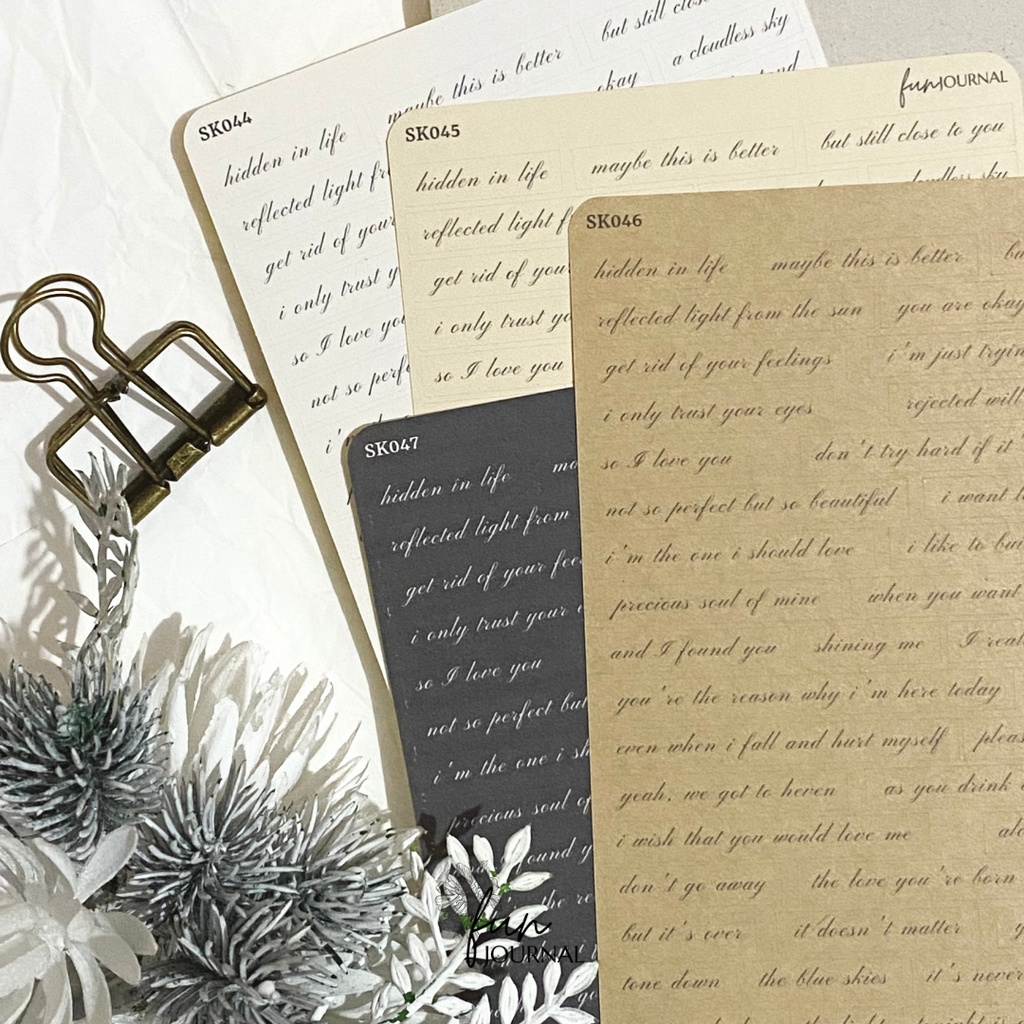 SK044
but still close
maybe this is better
a cloudless sky
hidden in life
okay
reflected light
get rid of your
i only trust
so I love you
not so perfe
SK045
fun JOURNAL
hidden in life maybe this is better but still close to you
reflected light cloudless sky
get rid of your
i only trust yo
so I love you
SK046
hidden in life maybe this is better bu
reflected light from the sun you are okay
get rid of your feelings i'm just tryin
i only trust your eyes rejected will
so I love you don't try hard if it
not so perfect but so beautiful i want
i'm the one i should love i like to
precious soul of mine when you want
and I found you shining me I real
you're the reason why i'm here today
even when i fall and hurt myself pleas
yeah, we got to heven as you drink
i wish that you would love me alo
don't go away the love you're born
but it's over it doesn't matter
tone down the blue skies it's never
SK047
hidden in life
reflected light from
get rid of your fee
i only trust your
so I love you
not so perfect but
i'm the one i sh
precious soul of
ound y
the re
fun
JOURNAL